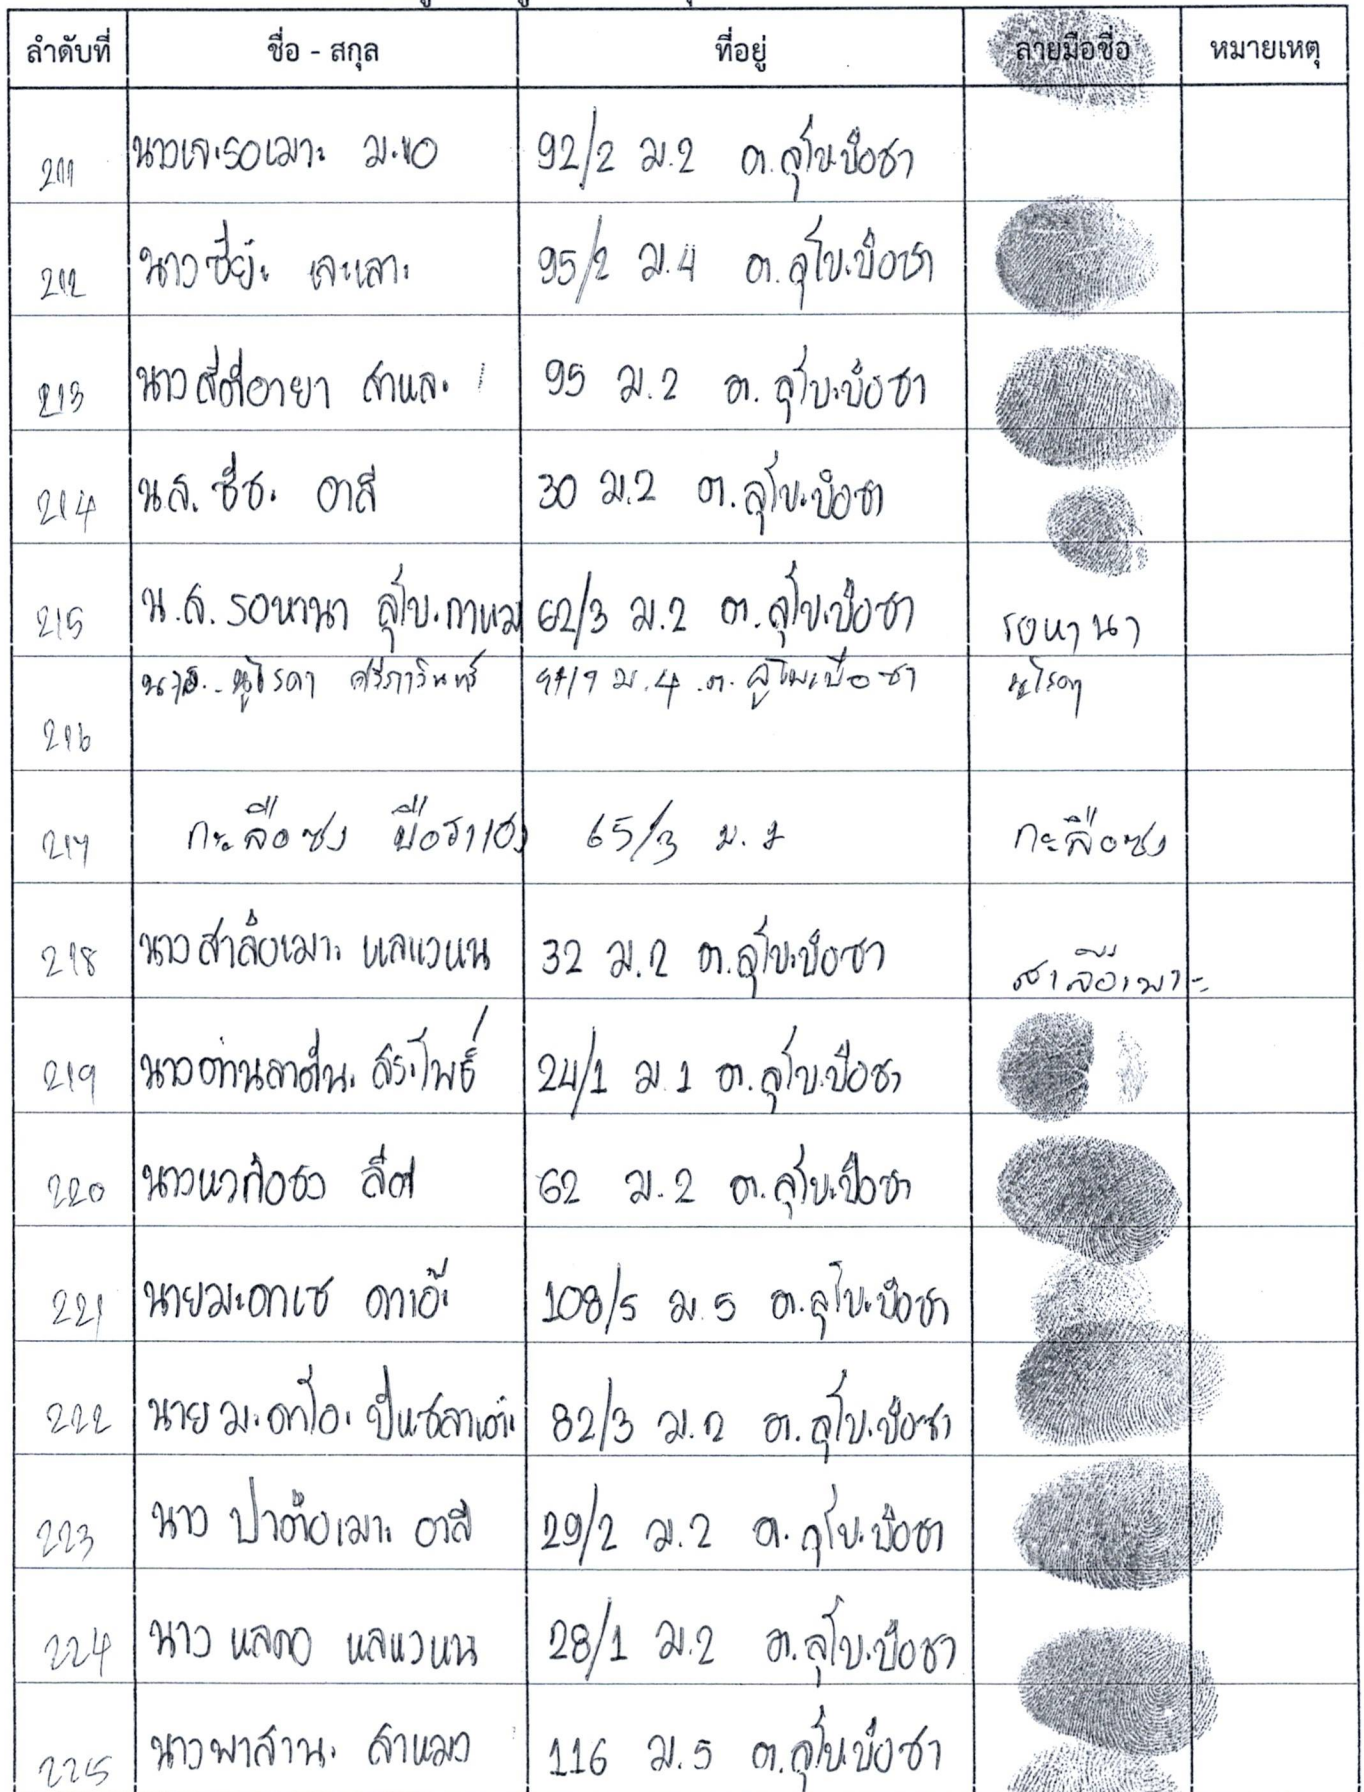 ลำดับที่ ชื่อ - สกุล ที่อยู่ ลายมือชื่อ หมายเหตุ
211 นางเจะรอเมาะ มะ 92/2 ม.2 ต.สุไบะบือซา
212 นางซียะ เลาะ 95/2 ม.4 ต.สุไบะบือซา
213 นางสีตีอายา สาและ 95 ม.2 ต.สุไบะบือซา
214 น.ส. ซีซะ อาลี 30 ม.2 ต.สุไบะบือซา
215 น.ส. รอหานา สุไบะกาแม 62/3 ม.2 ต.สุไบะบือซา รอหานา
216 นูไรดา ศรีภารินทร์ ม.4 ต. สุไบะบือซา นูไรดา
217 กะลือซง บือราเฮง 65/3 ม. กะลือซง
218 นางสาลือเมาะ แลแวแน 32 ม.2 ต.สุไบะบือซา สาลือเมาะ
219 นาง สระโพธิ์ 24/1 ม.1 ต.สุไบะบือซา
220 62 ม.2 ต.สุไบะบือซา
221 นายมะดาเซ ดาโอ๊ะ 108/5 ม.5 ต.สุไบะบือซา
222 นาย มะดาโอะ 82/3 ม.2 ต.สุไบะบือซา
223 นาง ปาตือเมาะ อาลี 29/2 ม.2 ต.สุไบะบือซา
224 นาง แลแวแน 28/1 ม.2 ต.สุไบะบือซา
225 นางพาสานะ สาแมง 116 ม.5 ต.สุไบะบือซา